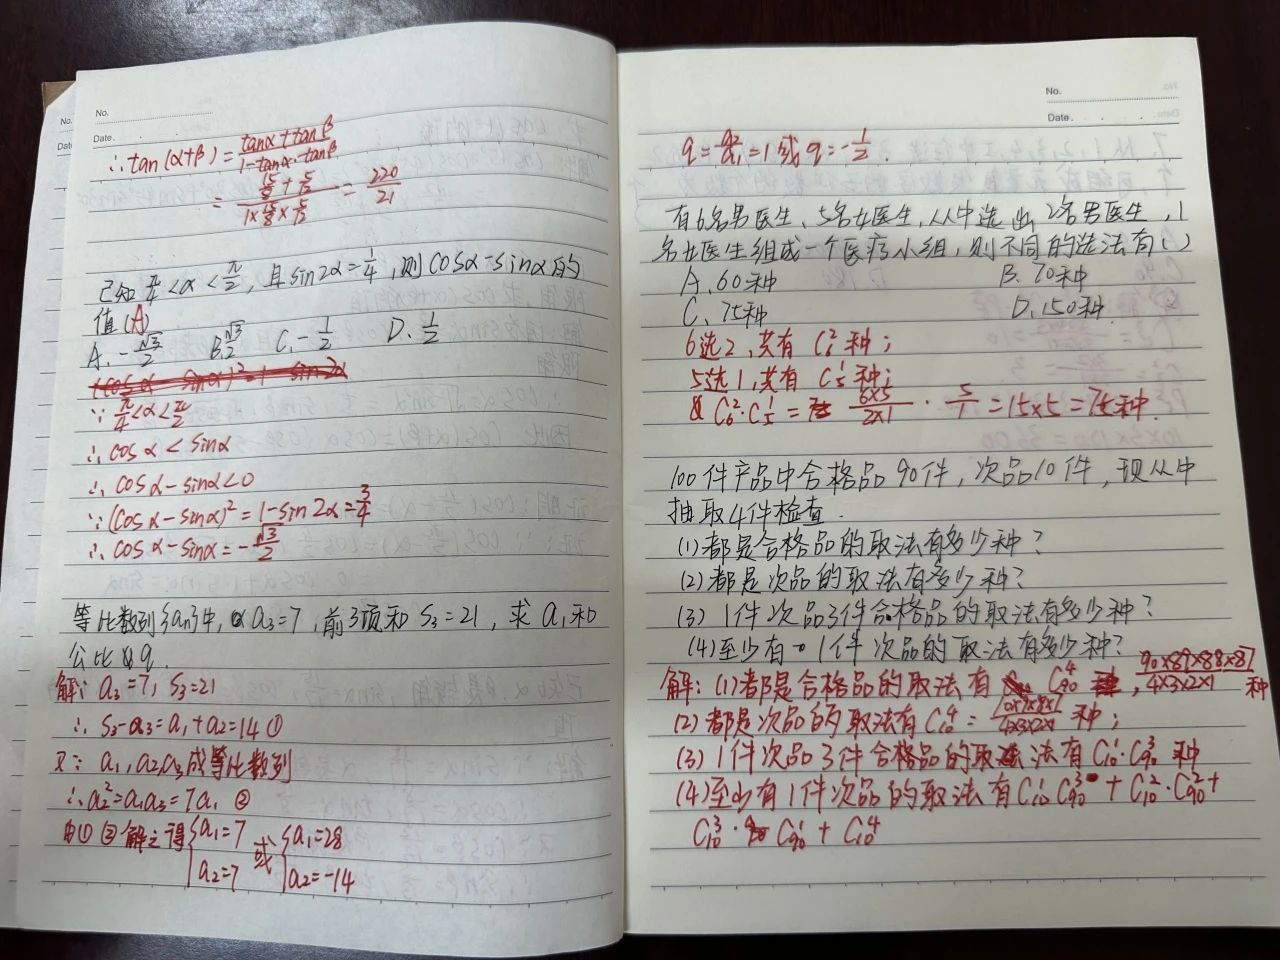 No.
Date.
∴tan(α+β)=\frac{tanα+tanβ}{1-tanα·tanβ}
=\frac{\frac{15}{8}+\frac{5}{13}}{1×\frac{15}{8}×\frac{5}{13}}=\frac{220}{21}
已知\frac{π}{4}<α<\frac{π}{2},且sin2α=\frac{1}{4},则cosα-sinα的
值(A)
A.-\frac{\sqrt{3}}{2} B.\frac{\sqrt{3}}{2} C.-\frac{1}{2} D.\frac{1}{2}
∵\frac{π}{4}<α<\frac{π}{2}
∴cosα<sinα
∴cosα-sinα<0
∵(cosα-sinα)²=1-sin2α=\frac{3}{4}
∴cosα-sinα=-\frac{\sqrt{3}}{2}
等比数列{an}中,a₃=7,前3项和S₃=21,求a₁和
公比q.
解:a₃=7,S₃=21
∴S₃-a₃=a₁+a₂=14①
又∵a₁,a₂,a₃成等比数列
∴a₂²=a₁a₃=7a₁②
由①②解之得{a₁=7 a₂=7 或{a₁=28 a₂=-14
No.
Date.
q=\frac{a₂}{a₁}=1或q=-\frac{1}{2}.
有6名男医生、5名女医生,从中选出2名男医生,1
名女医生组成一个医疗小组,则不同的选法有()
A.60种 B.70种
C.75种 D.150种
6选2,共有C₆²种;
5选1,共有C₅¹种;
C₆²·C₅¹=\frac{6×5}{2×1}·\frac{5}{1}=15×5=75种.
100件产品中合格品90件,次品10件,现从中
抽取4件检查.
(1)都是合格品的取法有多少种?
(2)都是次品的取法有多少种?
(3)1件次品3件合格品的取法有多少种?
(4)至少有1件次品的取法有多少种?
解:(1)都是合格品的取法有C₉₀⁴,\frac{90×89×88×87}{4×3×2×1}种
(2)都是次品的取法有C₁₀⁴=\frac{10×9×8×7}{4×3×2×1}种;
(3)1件次品3件合格品的取法有C₁₀¹·C₉₀³种
(4)至少有1件次品的取法有C₁₀¹C₉₀³+C₁₀²·C₉₀²+
C₁₀³·C₉₀¹+C₁₀⁴